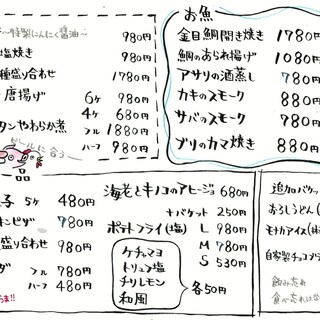 〜特製にんにく醤油〜
980円
塩焼き 980円
種盛り合わせ 1780円
唐揚げ 6ヶ 980円
4ヶ 680円
タンやわらか煮 フル 1880円
ハーフ 980円
ビールに合う
一品
子 5ヶ 480円
キンピダ 780円
盛り合わせ 980円
ダ フル 780円
ハーフ 480円
うま!!
お魚
金目鯛開き焼き 1780円
鯛のあられ揚げ 1080円
アサリの酒蒸し 780円
カキのスモーク 880円
サバのスモーク 780円
ブリのカマ焼き 880円
海老とキノコのアヒージョ 680円
+バケット 250円
ポテトフライ(塩) L 980円
M 780円
S 530円
ケチャマヨ
トリュフ塩
チリレモン
和風
各50円
追加バケッ
おろしうどん(
モナカアイス(抹
自家製チョコブラ
飲み忘れ
食べ忘れはな